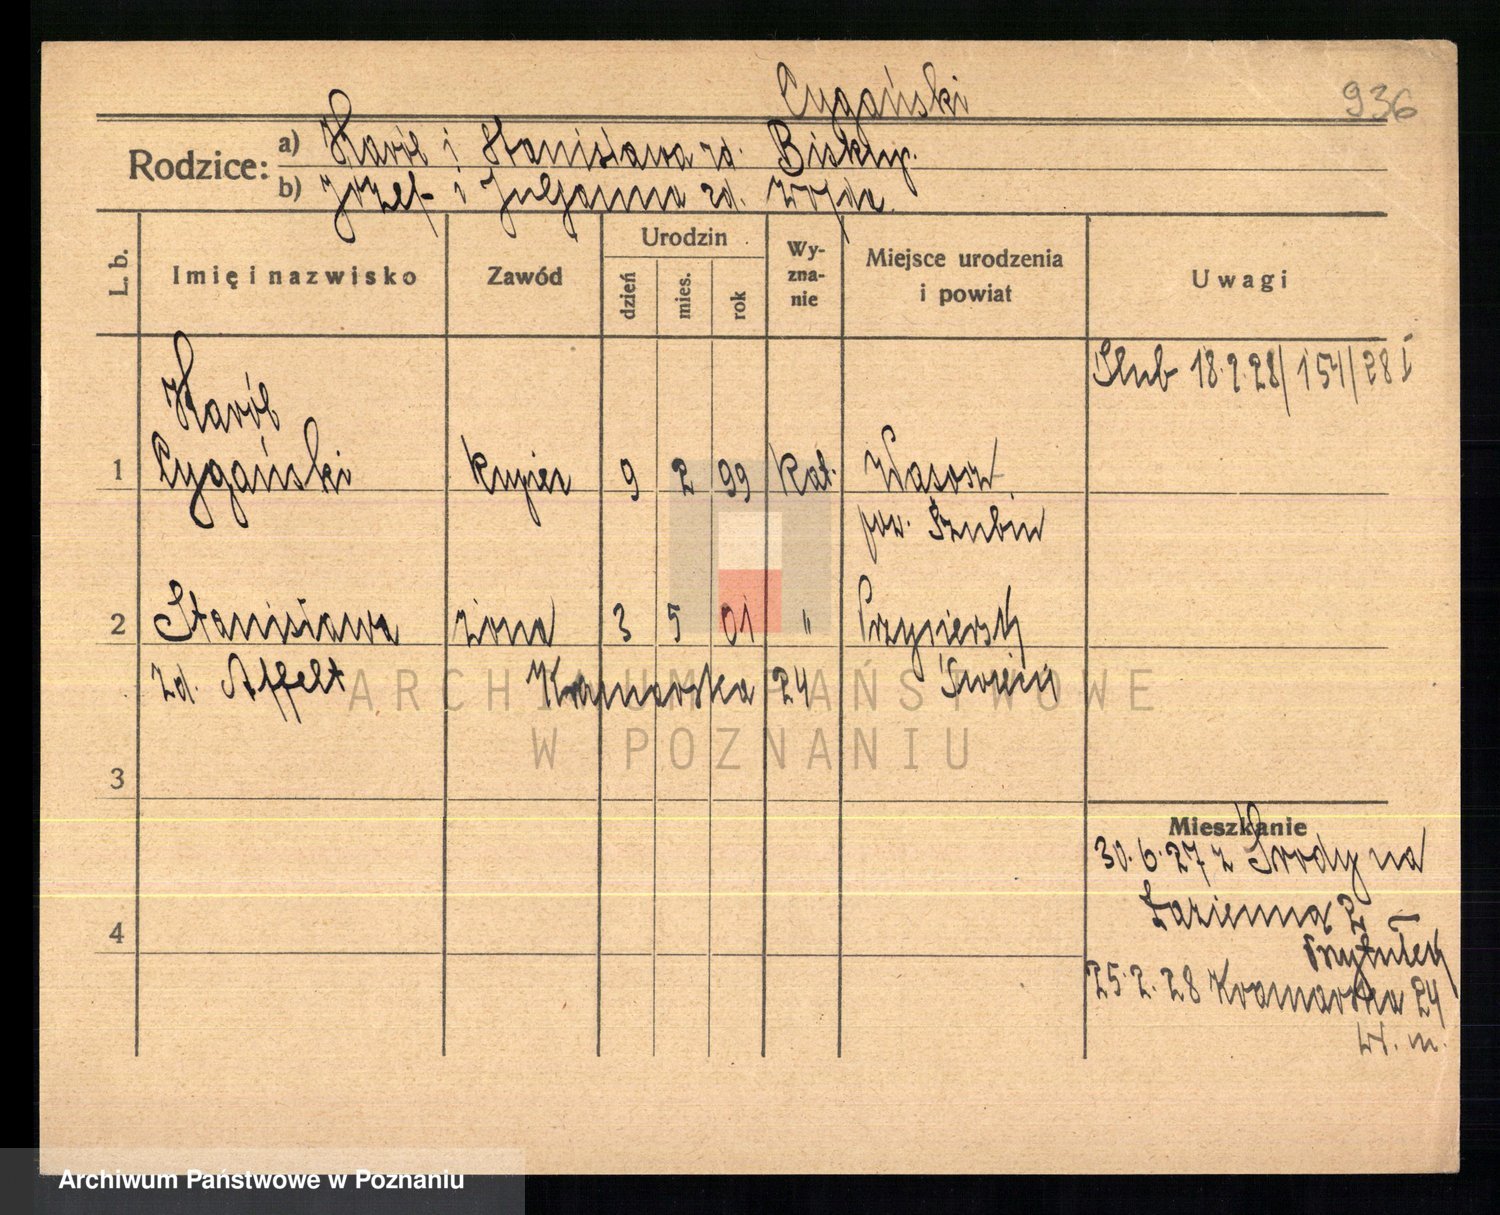 Cygański
936
Rodzice: a) Karól i Stanisława zd. Biskup.
b) Józef i Juljanna zd. Wojda.
L. b. Imię i nazwisko Zawód Urodzin dzień mies. rok Wy-zna-nie Miejsce urodzenia i powiat Uwagi
Ślub 18.2.28/154/28 I
Karól
1 Cygański kupiec 9 2 99 kat. Wąsosz
pow. Szubin
2 Stanisława żona 3 5 01 "
zd. Affelt Kramarska 24 Świecie
3
Mieszkanie
30.6.27 z Środy na
4 Łazienną 2
Przytułek
25.2.28 Kramarska 24
W. m.
ARCHIWUM PAŃSTWOWE
W POZNANIU
Archiwum Państwowe w Poznaniu